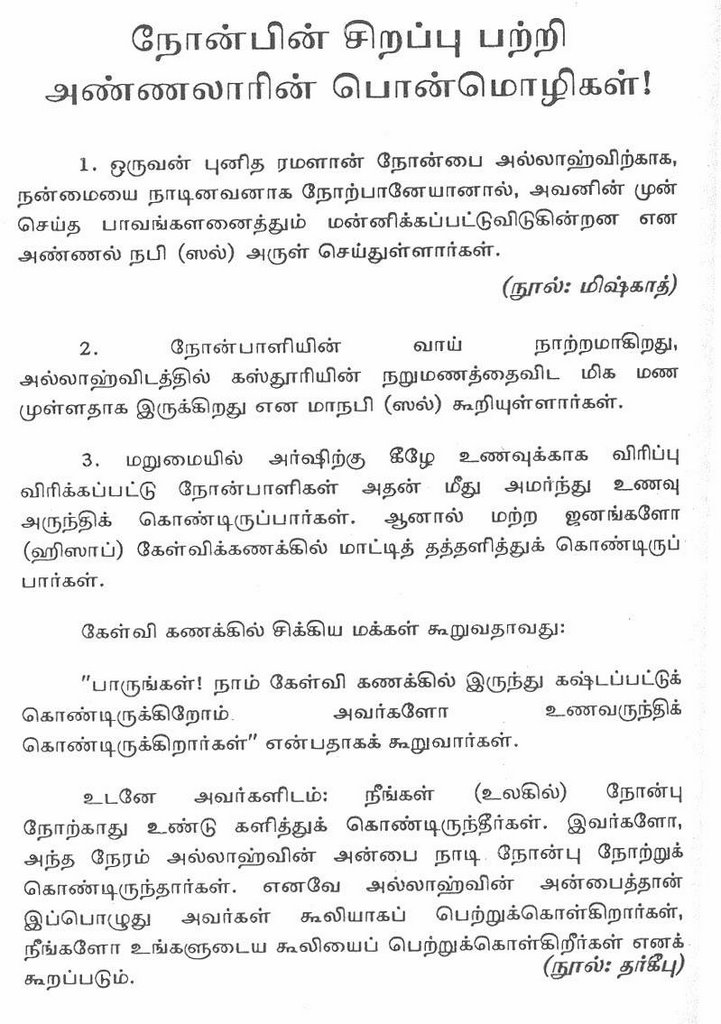 நோன்பின் சிறப்பு பற்றி
அண்ணலாரின் பொன்மொழிகள்!
1. ஒருவன் புனித ரமளான் நோன்பை அல்லாஹ்விற்காக,
நன்மையை நாடினவனாக நோற்பானேயானால், அவனின் முன்
செய்த பாவங்களனைத்தும் மன்னிக்கப்பட்டுவிடுகின்றன என
அண்ணல் நபி (ஸல்) அருள் செய்துள்ளார்கள்.
(நூல்: மிஷ்காத்)
2. நோன்பாளியின் வாய் நாற்றமாகிறது,
அல்லாஹ்விடத்தில் கஸ்தூரியின் நறுமணத்தைவிட மிக மண
முள்ளதாக இருக்கிறது என மாநபி (ஸல்) கூறியுள்ளார்கள்.
3. மறுமையில் அர்ஷிற்கு கீழே உணவுக்காக விரிப்பு
விரிக்கப்பட்டு நோன்பாளிகள் அதன் மீது அமர்ந்து உணவு
அருந்திக் கொண்டிருப்பார்கள். ஆனால் மற்ற ஜனங்களோ
(ஹிஸாப்) கேள்விக்கணக்கில் மாட்டித் தத்தளித்துக் கொண்டிருப்
பார்கள்.
கேள்வி கணக்கில் சிக்கிய மக்கள் கூறுவதாவது:
"பாருங்கள்! நாம் கேள்வி கணக்கில் இருந்து கஷ்டப்பட்டுக்
கொண்டிருக்கிறோம். அவர்களோ உணவருந்திக்
கொண்டிருக்கிறார்கள்" என்பதாகக் கூறுவார்கள்.
உடனே அவர்களிடம்: நீங்கள் (உலகில்) நோன்பு
நோற்காது உண்டு களித்துக் கொண்டிருந்தீர்கள். இவர்களோ,
அந்த நேரம் அல்லாஹ்வின் அன்பை நாடி நோன்பு நோற்றுக்
கொண்டிருந்தார்கள். எனவே அல்லாஹ்வின் அன்பைத்தான்
இப்பொழுது அவர்கள் கூலியாகப் பெற்றுக்கொள்கிறார்கள்,
நீங்களோ உங்களுடைய கூலியைப் பெற்றுக்கொள்கிறீர்கள் எனக்
கூறப்படும்.
(நூல்: தர்கீபு)